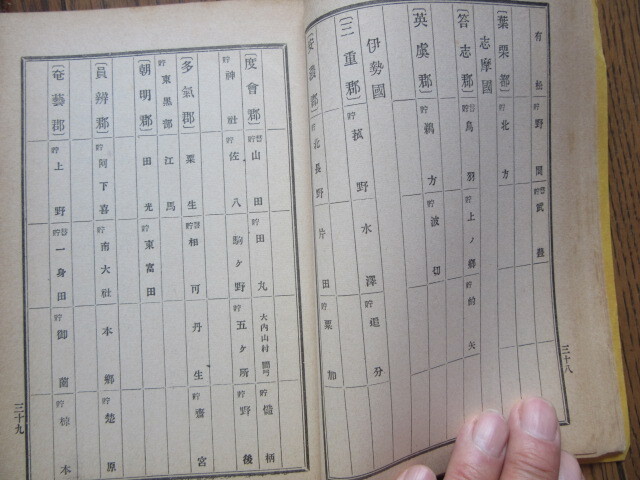 有松 貯野間 替貯武豊
〔葉栗郡〕 貯北方
志摩國
〔答志郡〕 替貯鳥羽 貯上ノ鄕 貯的矢
〔英虞郡〕 貯鵜方 貯波切
伊勢國
〔三重郡〕 貯菰野 水澤 貯追分
貯北長野 片田 貯粟加
三十八
〔度會郡〕 替貯山田 貯田丸 大內山村間弓 貯慥柄
貯神社 貯佐八 駒ケ野 貯五ケ所 貯野後
〔多氣郡〕 粟生 替貯相可 丹生 貯齋宮
貯東黑部 江馬
〔朝明郡〕 田光 貯東富田
〔員辨郡〕 貯阿下喜 貯南大社 本鄕 貯楚原
〔奄藝郡〕 貯上野 替貯一身田 貯御薗 貯椋本
三十九